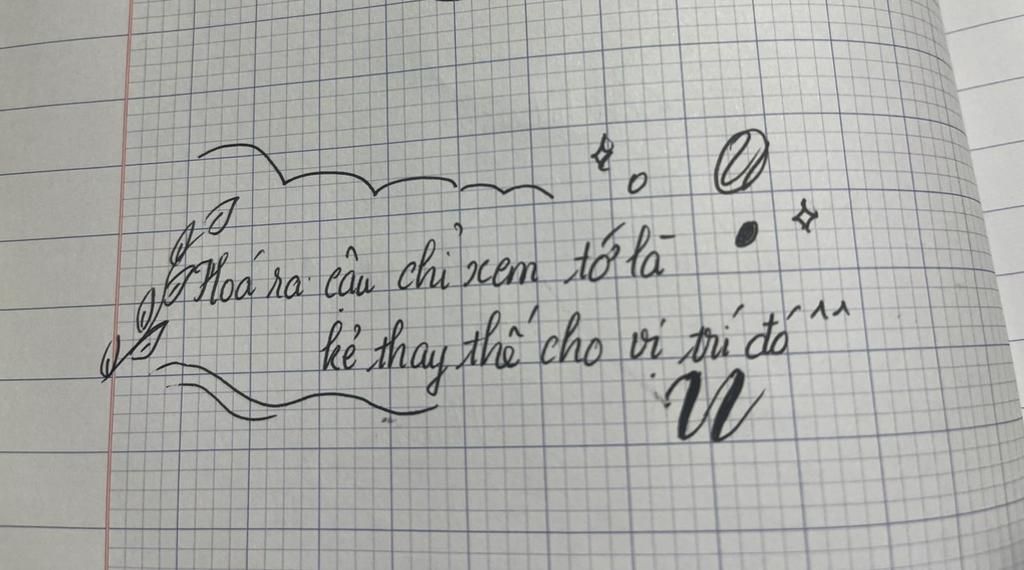 Hoá ra cậu chỉ xem tớ là
kẻ thay thế cho vị trí đó ^^